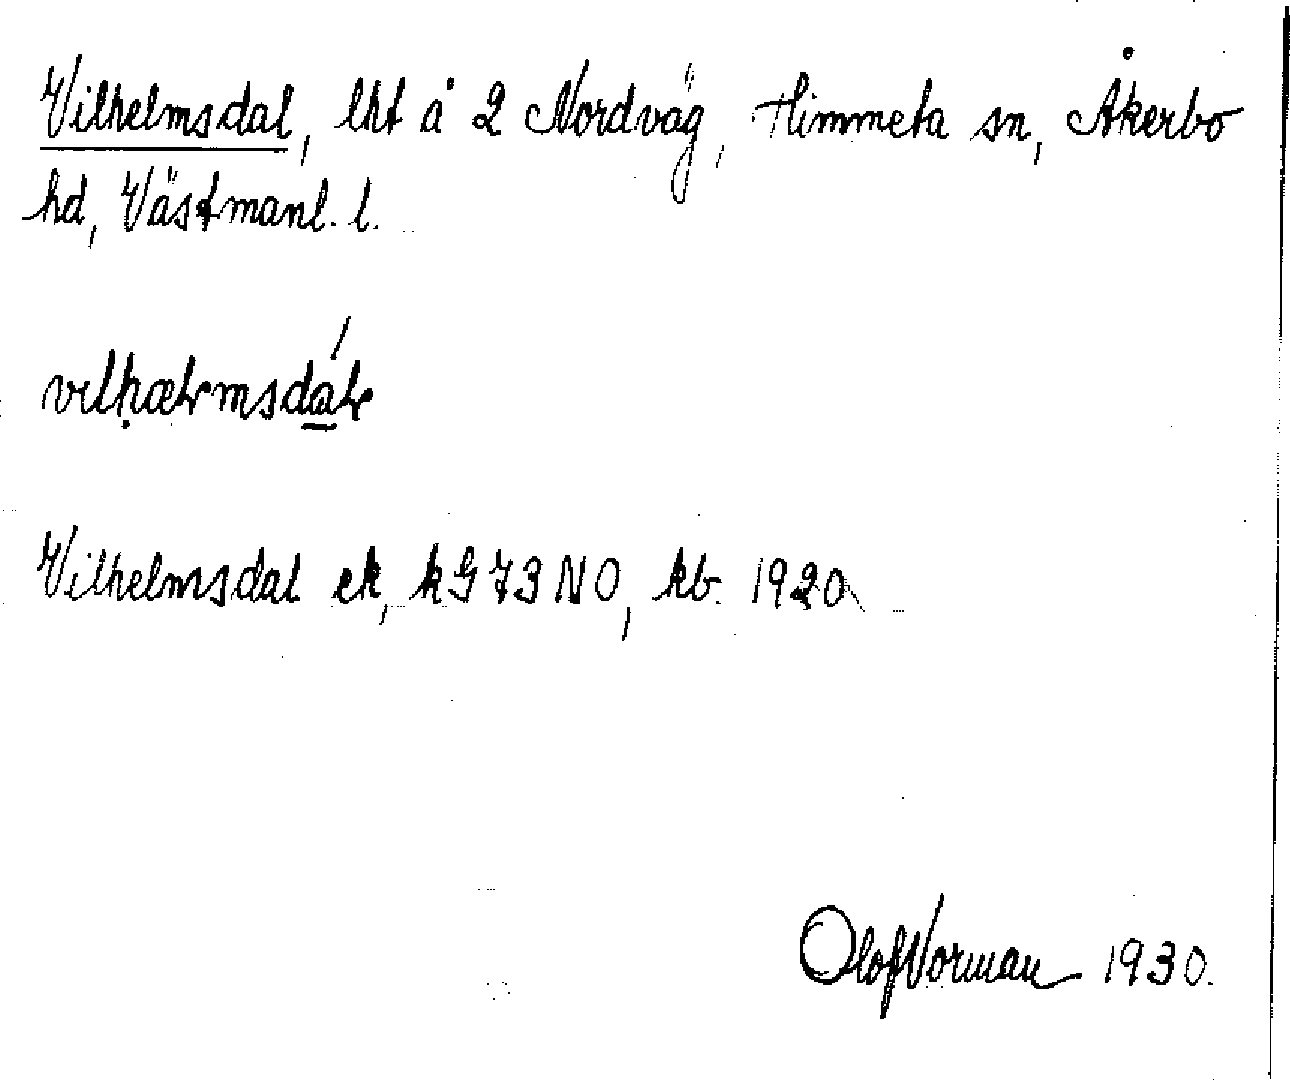 Vilhelmsdal, lht å 2 Nordväg, Himmeta sn, Åkerbo
hd, Västmanl. l.
vılhælmsdál
Vilhelmsdal ek, kG73NO, kb. 1920
Olof Norman 1930.